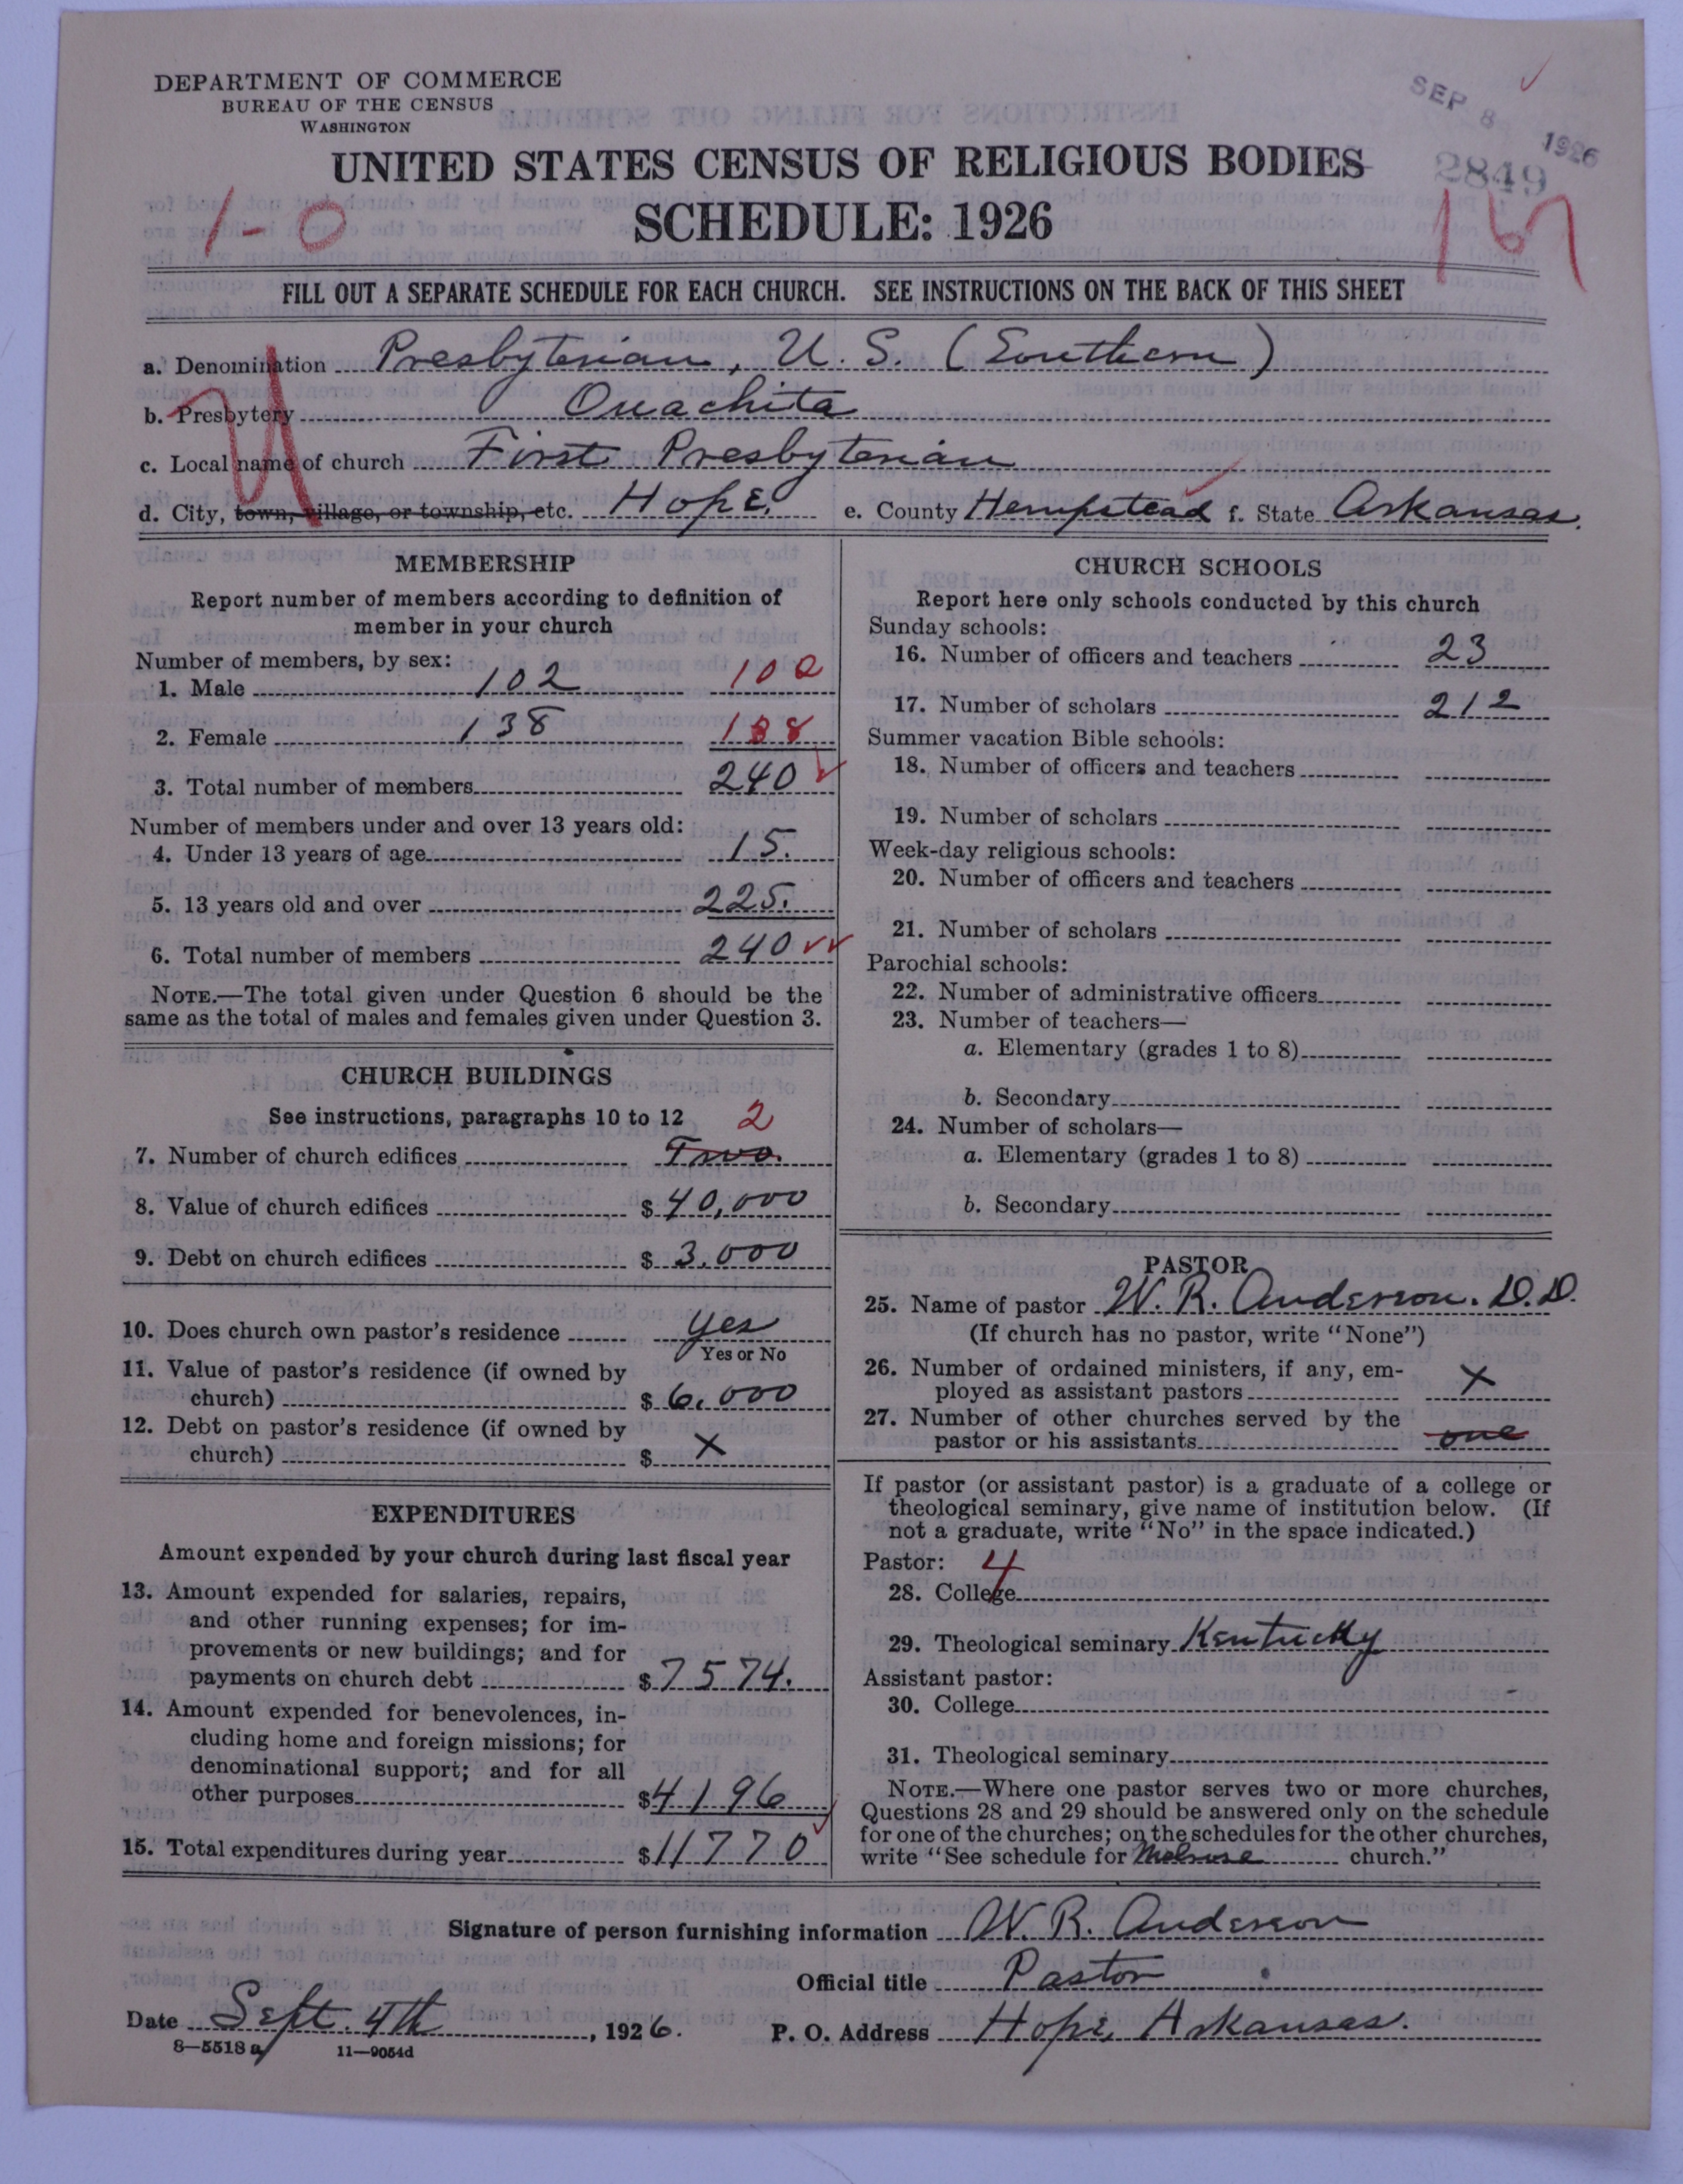 DEPARTMENT OF COMMERCE
BUREAU OF THE CENSUS
WASHINGTON
SEP 8 1926
2849
UNITED STATES CENSUS OF RELIGIOUS BODIES
SCHEDULE: 1926
1-0
FILL OUT A SEPARATE SCHEDULE FOR EACH CHURCH. SEE INSTRUCTIONS ON THE BACK OF THIS SHEET
a. Denomination Presbyterian, U. S. (Southern)
b. Presbytery Ouachita
c. Local name of church First Presbyterian
d. City, town, village, or township, etc. Hope. e. County Hempstead f. State Arkansas.
MEMBERSHIP
Report number of members according to definition of
member in your church
Number of members, by sex:
1. Male 102 102
2. Female 138 138
3. Total number of members 240
Number of members under and over 13 years old:
4. Under 13 years of age 15.
5. 13 years old and over 225.
6. Total number of members 240
NOTE.—The total given under Question 6 should be the
same as the total of males and females given under Question 3.
CHURCH BUILDINGS
See instructions, paragraphs 10 to 12 2
7. Number of church edifices Two.
8. Value of church edifices $ 40,000
9. Debt on church edifices $ 3,000
10. Does church own pastor's residence yes
Yes or No
11. Value of pastor's residence (if owned by
church) $ 6,000
12. Debt on pastor's residence (if owned by
church) $ X
EXPENDITURES
Amount expended by your church during last fiscal year
13. Amount expended for salaries, repairs,
and other running expenses; for im-
provements or new buildings; and for
payments on church debt $ 7574.
14. Amount expended for benevolences, in-
cluding home and foreign missions; for
denominational support; and for all
other purposes $ 4196
15. Total expenditures during year $ 11770
CHURCH SCHOOLS
Report here only schools conducted by this church
Sunday schools:
16. Number of officers and teachers 23
17. Number of scholars 212
Summer vacation Bible schools:
18. Number of officers and teachers
19. Number of scholars
Week-day religious schools:
20. Number of officers and teachers
21. Number of scholars
Parochial schools:
22. Number of administrative officers
23. Number of teachers—
a. Elementary (grades 1 to 8)
b. Secondary
24. Number of scholars—
a. Elementary (grades 1 to 8)
b. Secondary
PASTOR
25. Name of pastor W. R. Anderson. D.D.
(If church has no pastor, write "None")
26. Number of ordained ministers, if any, em-
ployed as assistant pastors X
27. Number of other churches served by the
pastor or his assistants one
If pastor (or assistant pastor) is a graduate of a college or
theological seminary, give name of institution below. (If
not a graduate, write "No" in the space indicated.)
Pastor: 4
28. College
29. Theological seminary Kentucky
Assistant pastor:
30. College
31. Theological seminary
NOTE.—Where one pastor serves two or more churches,
Questions 28 and 29 should be answered only on the schedule
for one of the churches; on the schedules for the other churches,
write "See schedule for Melrose church."
Signature of person furnishing information W. R. Anderson
Official title Pastor
Date Sept. 4th, 1926. P. O. Address Hope, Arkansas.
8—5518 a 11—9054d